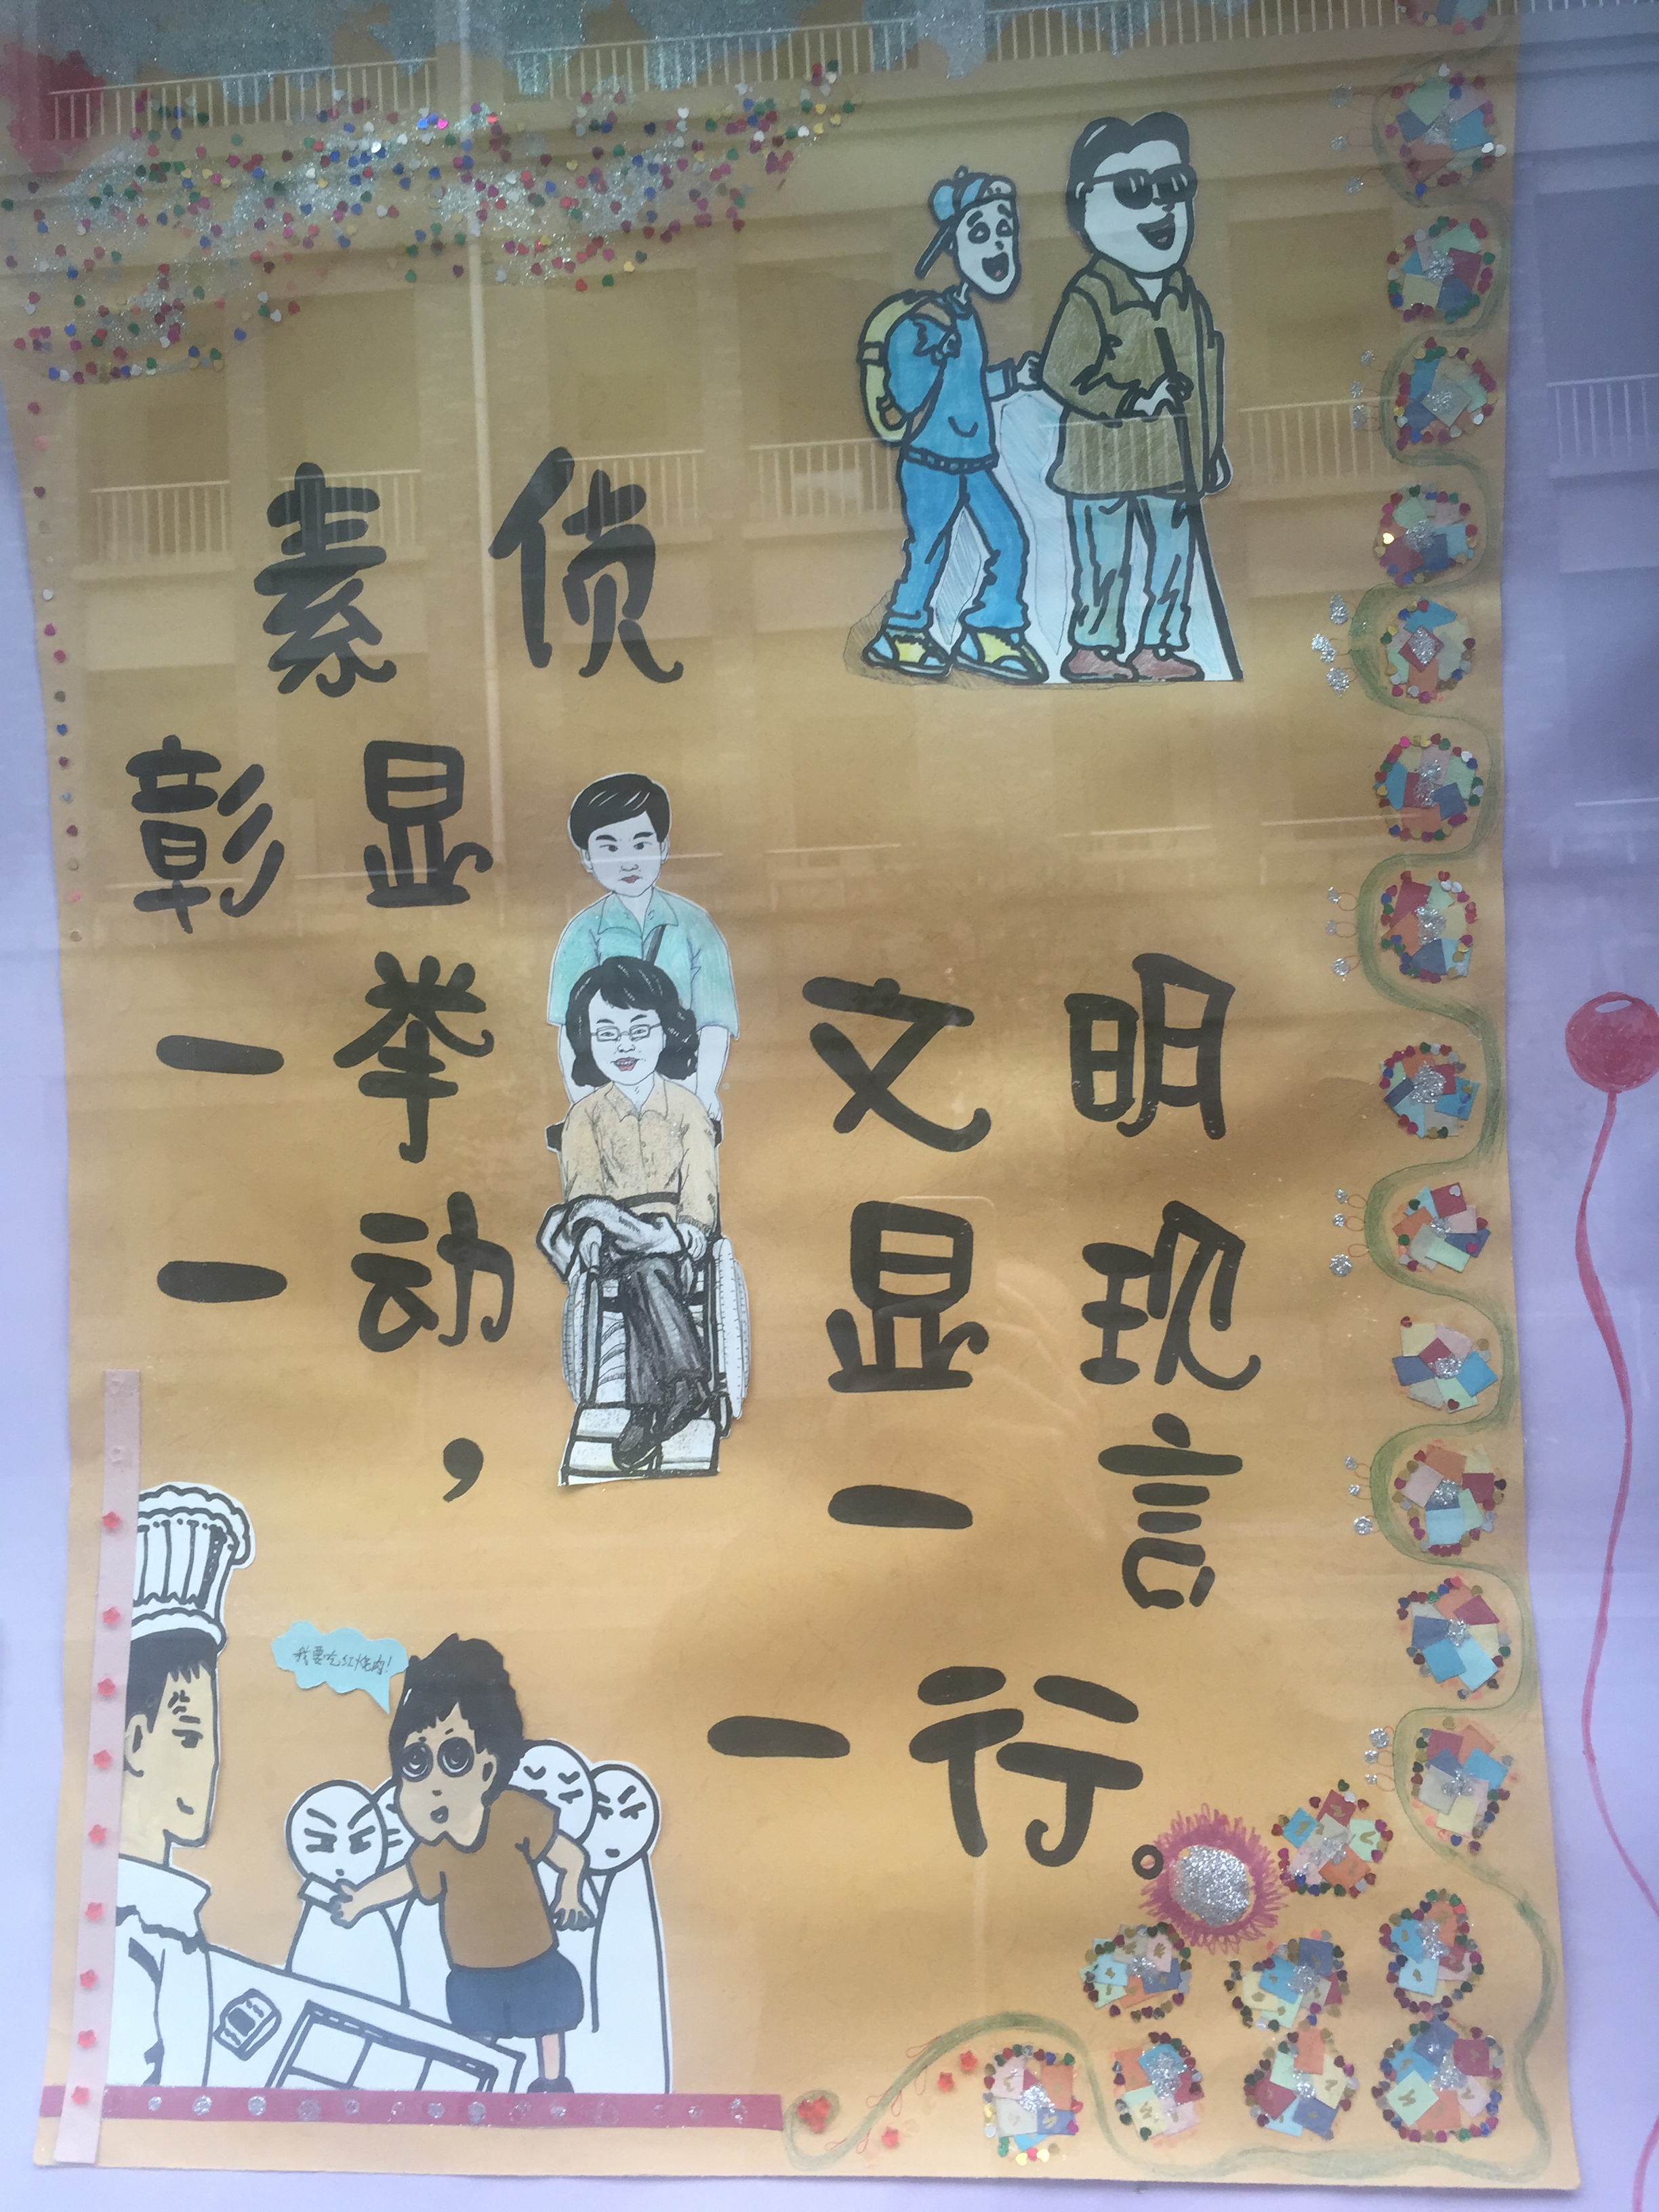 素侦
彰显
一举
一动，
文明
显现
一言
一行。
我要吃红烧肉！